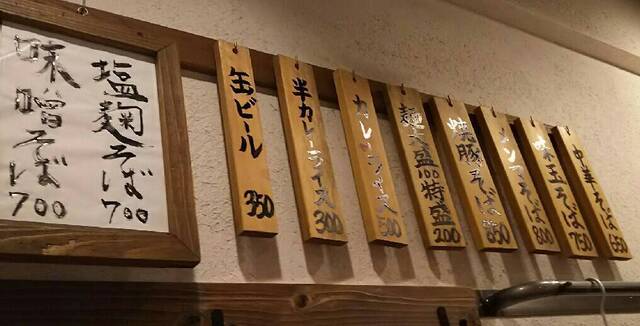 中華そば 650
味玉そば 750
メンマそば 800
焼豚そば 850
麺大盛100 特盛200
カレーライス 500
半カレーライス 300
缶ビール 350
塩麹そば 700
味噌そば 700